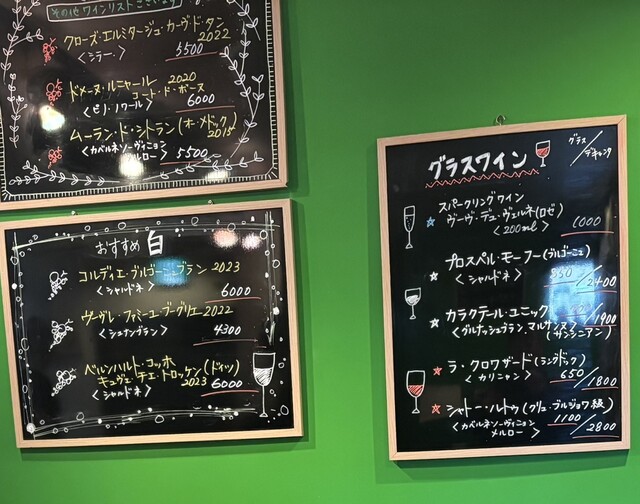 その他ワインリストございます
クローズ・エルミタージュ・カーヴ・ド・タン
2022
<シラー>
5500
ドメーヌ・ルニャール 2020
コート・ド・ボース
<ピノ・ノワール> 6000
ムーラン・ド・シトラン(オー・メドック)
2015
<カベルネソーヴィニョン
メルロー> 5500
おすすめ 白
コルディエ・ブルゴーニュブラン 2023
<シャルドネ>
6000
ヴーヴレ・ファミーユ・ブーグリエ 2022
<シュナンブラン> 4300
ベルンハルト・コッホ
キュヴェ・チェ・トロッケン(ドイツ)
2023 6000
<シャルドネ>
グラスワイン
グラス/デキャンタ
スパークリングワイン
ヴーヴ・デュ・ヴェルネ(ロゼ)
<200ml> 1000
プロスペル・モーフー(ブルゴーニュ)
<シャルドネ> 850/2400
カラクテール・ユニック
/1900
<グルナッシュブラン、マルサンヌ>
(サンシニアン)
ラ・クロワザード(ラングドック)
<カリニャン> 650
/1800
シャトー・ルトゥ(クリュ・ブルジョワ級)
1100
<カベルネソーヴィニョン
メルロー> /2800